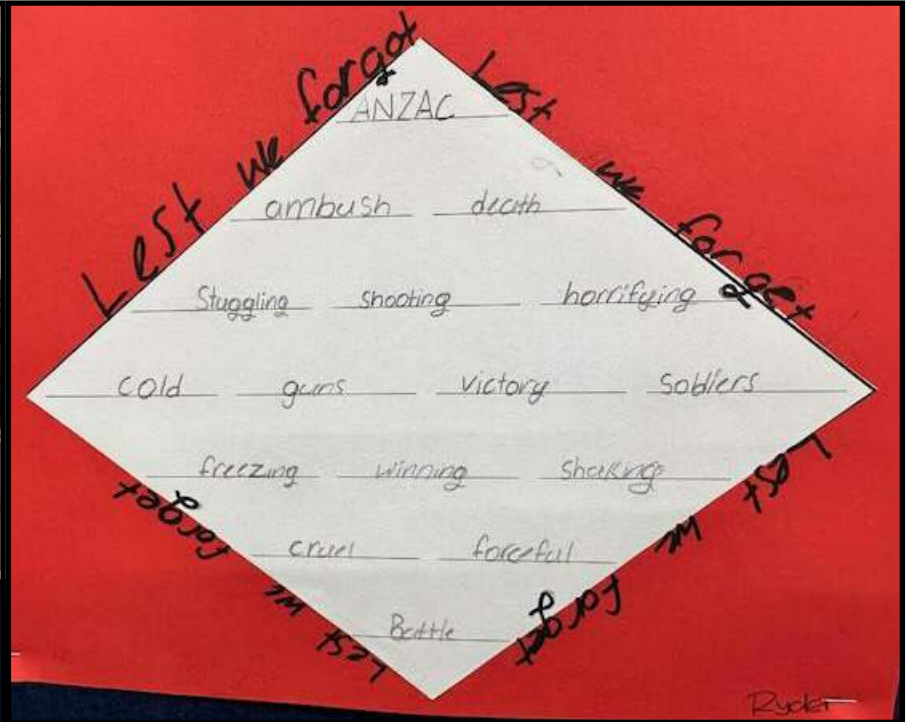 Lest we forgot
Lest we forget
ANZAC
ambush death
Stuggling shooting horrifying
cold guns victory sobliers
freezing winning shaking
cruel forceful
Battle
Lest we forget
Lest we forget
Ryder